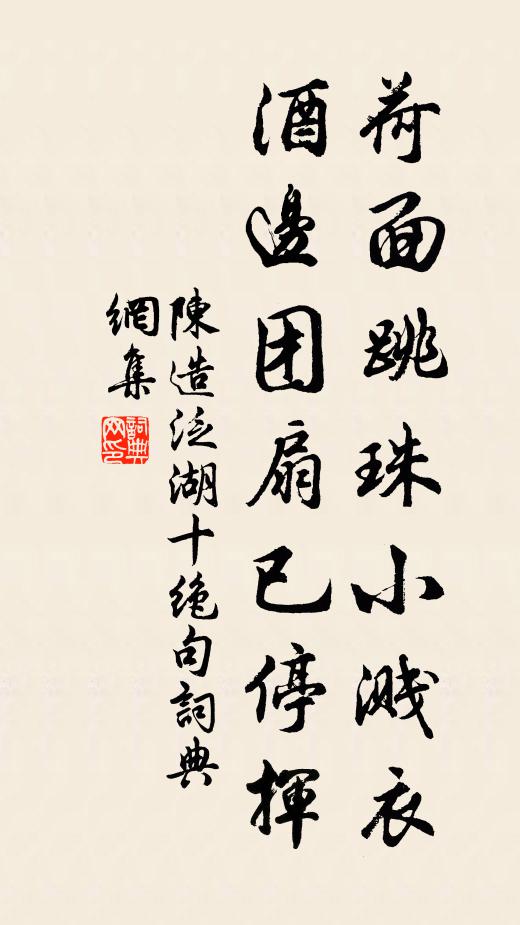 荷面跳珠小溅衣
酒邊团扇已停揮
陳造泛湖十绝句詞典
網集
詞典
网印